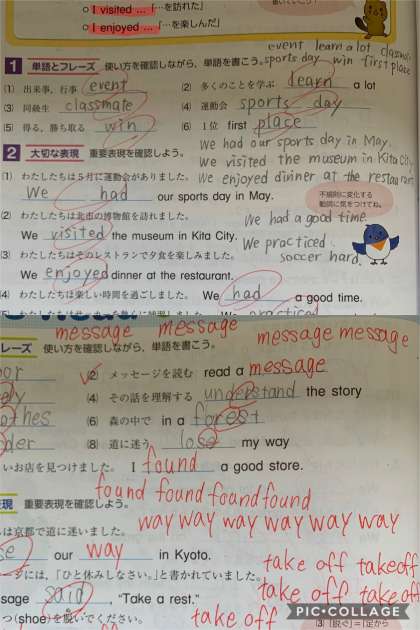 ○ I visited ... 「…を訪れた」
○ I enjoyed ... 「…を楽しんだ」
1 単語とフレーズ 使い方を確認しながら、単語を書こう。
event learn a lot
sports day win first place
(1) 出来事、行事 event (2) 多くのことを学ぶ learn a lot
(3) 同級生 classmate (4) 運動会 sports day
(5) 得る、勝ち取る win (6) 1位 first place
2 大切な表現 重要表現を確認しよう。
We had our sports day in May.
We visited the museum in Kita City.
We enjoyed dinner at the restaurant.
(1) わたしたちは5月に運動会がありました。
We had our sports day in May.
不規則に変化する
動詞に気をつけてね。
(2) わたしたちは北市の博物館を訪れました。
We had a good time.
We visited the museum in Kita City.
We practiced
soccer hard.
(3) わたしたちはそのレストランで夕食を楽しみました。
We enjoyed dinner at the restaurant.
(4) わたしたちは楽しい時間を過ごしました。 We had a good time.
practiced
message message message message
レーズ 使い方を確認しながら、単語を書こう。
(2) メッセージを読む read a message
(4) その話を理解する understand the story
(6) 森の中で in a forest
(8) 道に迷う lose my way
いお店を見つけました。 I found a good store.
found found found found
表現 重要表現を確認しよう。
way way way way way way
は京都で道に迷いました。
se our way in Kyoto.
take off take off
ージには、「ひと休みしなさい。」と書かれていました。
take off take off
sage said, "Take a rest."
つ(shoe)を脱いでください。
take off
PIC•COLLAGE
(3)「脱ぐ」=「足から